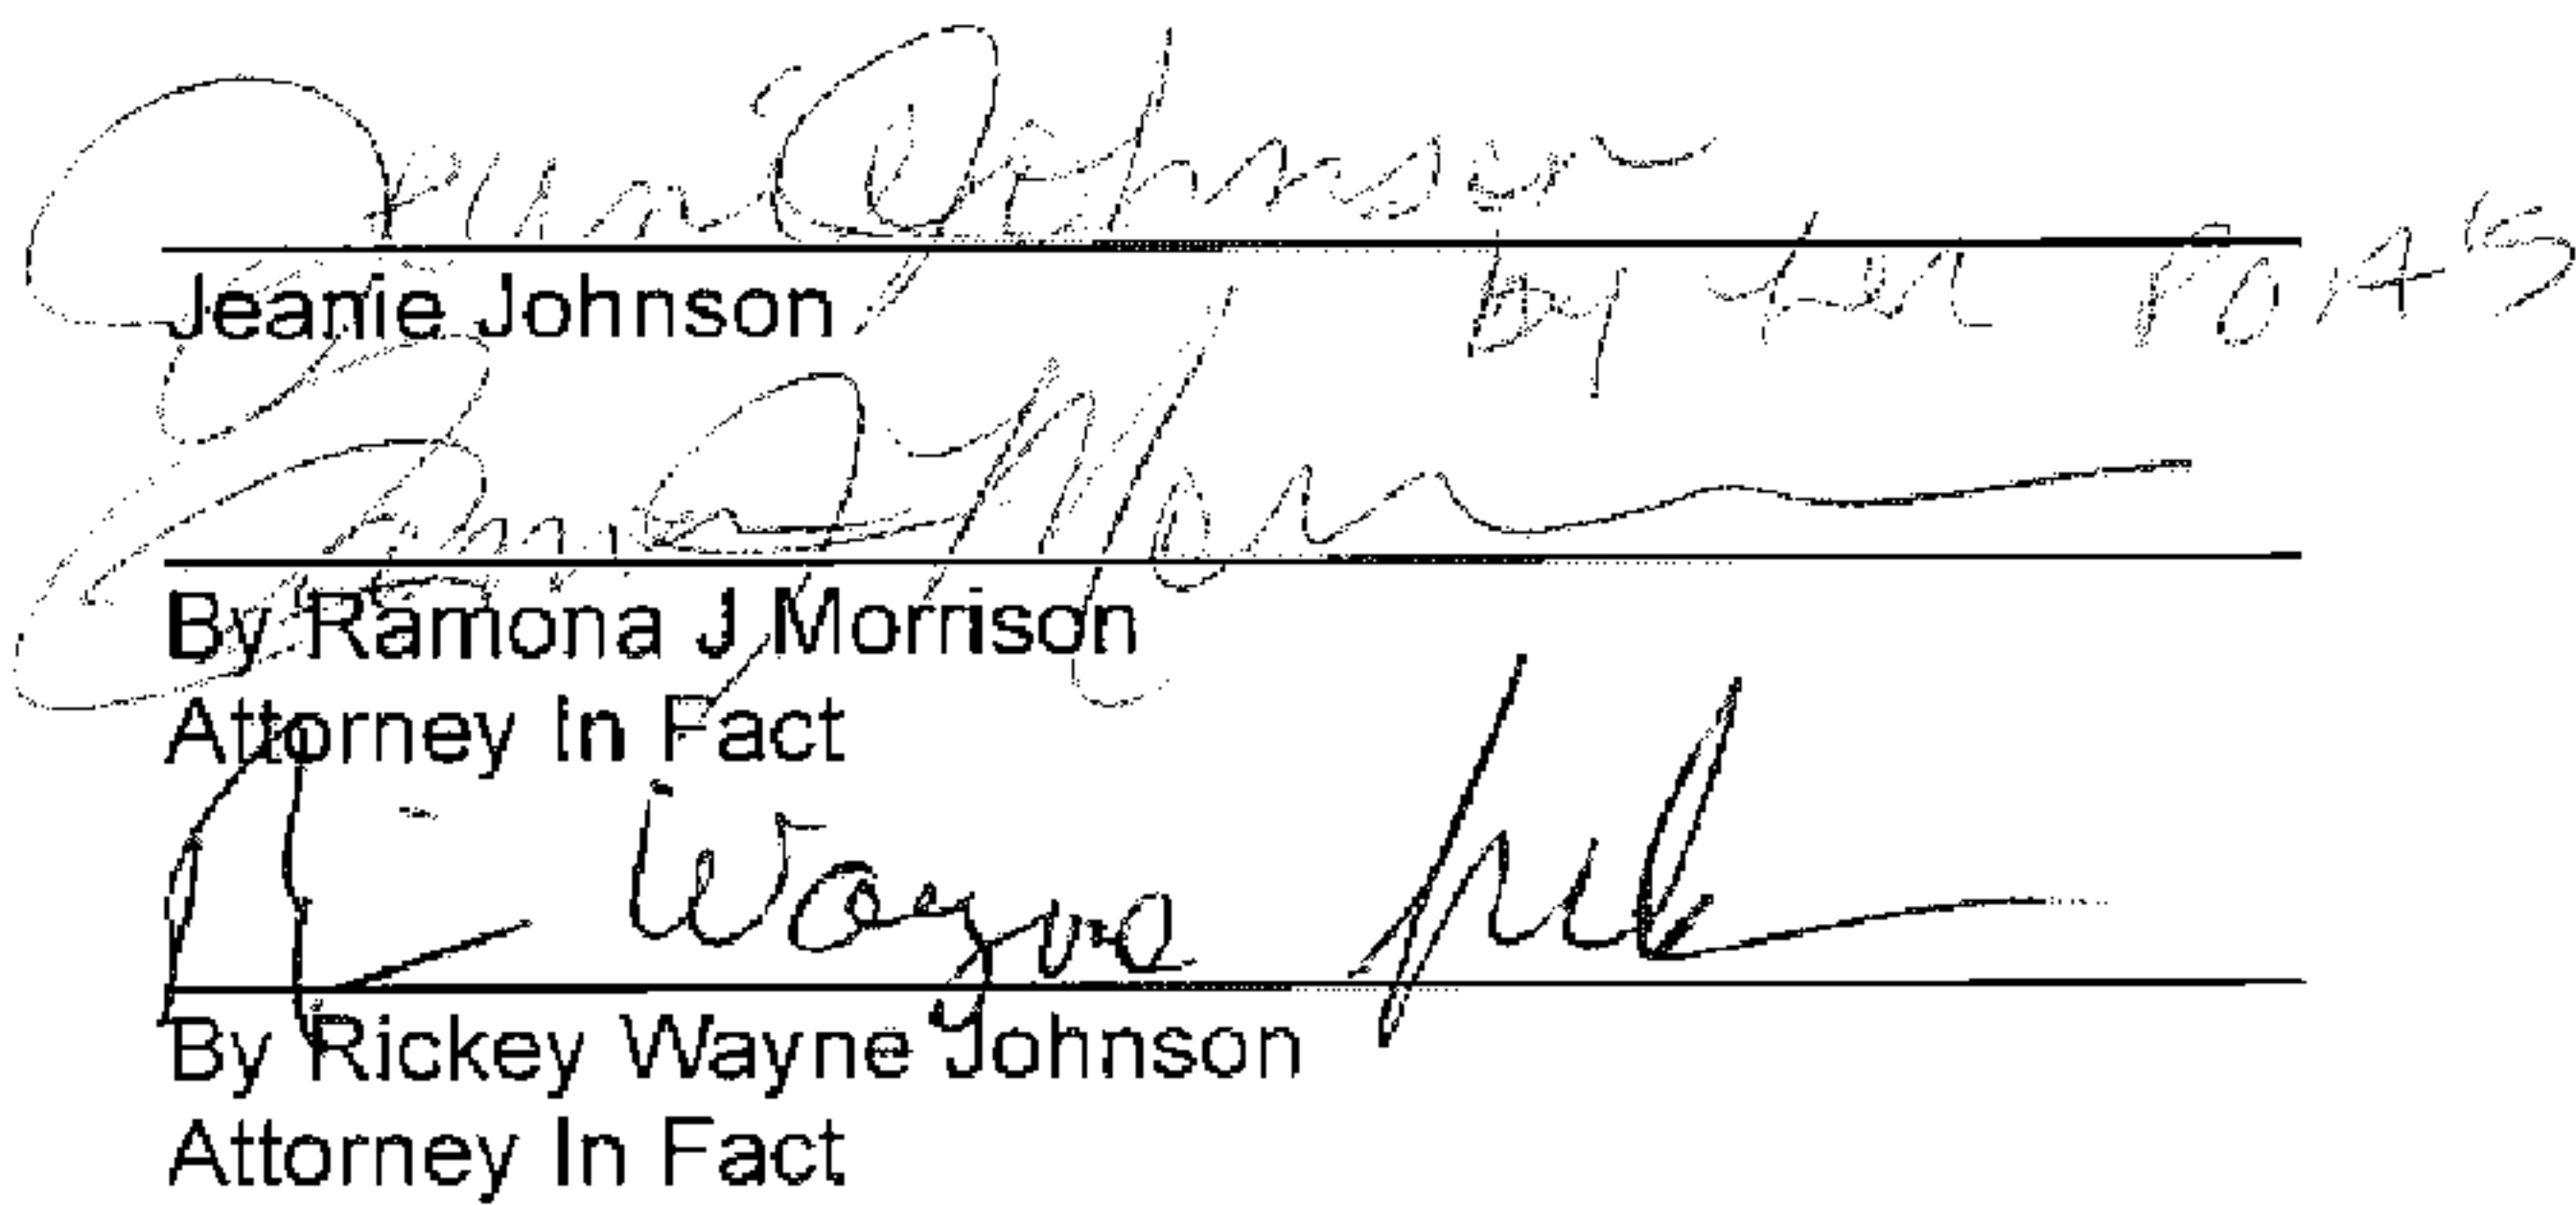 Jeanie Johnson
by her POA'S
Jeanie Johnson
By Ramona J Morrison
Attorney In Fact
Wayne
By Rickey Wayne Johnson
Attorney In Fact